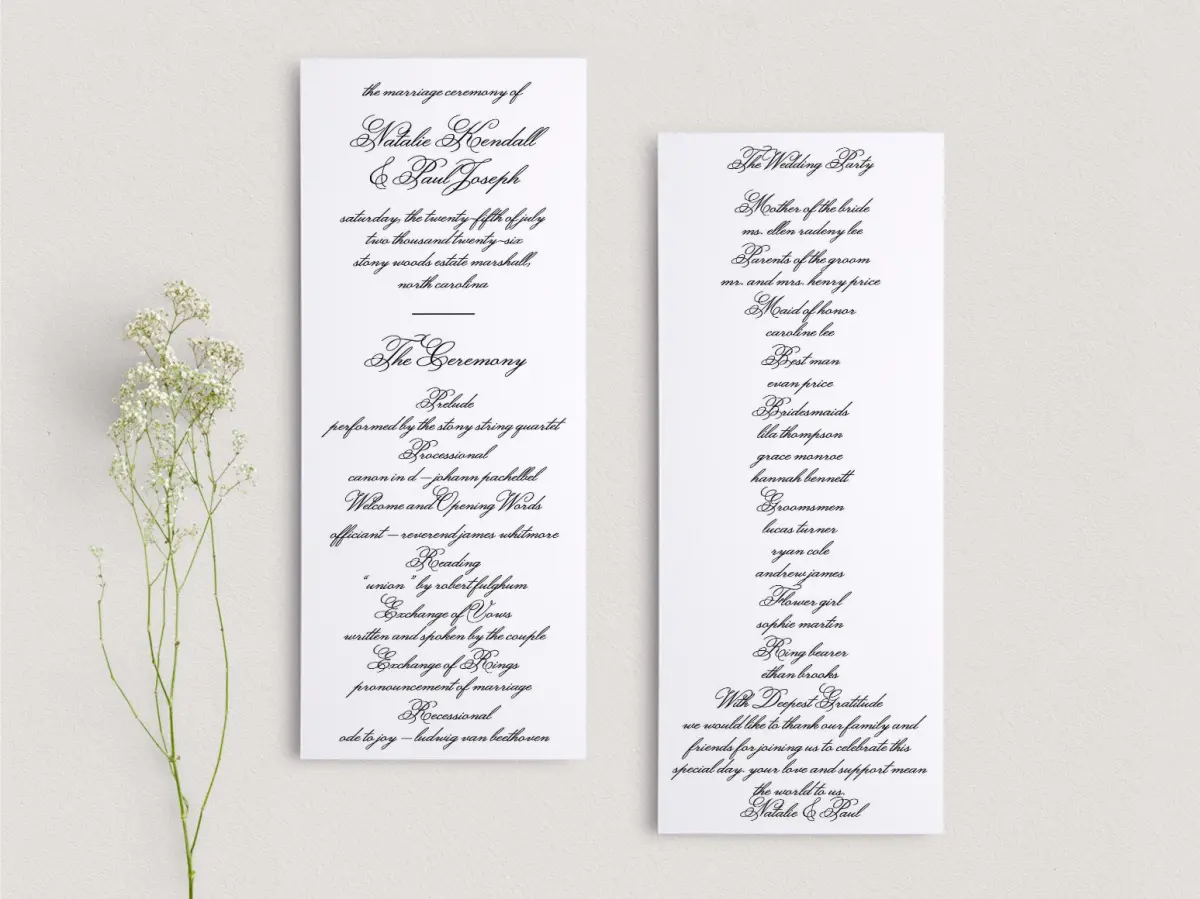 the marriage ceremony of
Natalie Kendall
& Paul Joseph
saturday, the twenty-fifth of july
two thousand twenty-six
stony woods estate marshall,
north carolina
The Ceremony
Prelude
performed by the stony string quartet
Processional
canon in d – johann pachelbel
Welcome and Opening Words
officiant – reverend james whitmore
Reading
"union" by robert fulghum
Exchange of Vows
written and spoken by the couple
Exchange of Rings
pronouncement of marriage
Recessional
ode to joy – ludwig van beethoven
The Wedding Party
Mother of the bride
ms. ellen radeny lee
Parents of the groom
mr. and mrs. henry price
Maid of honor
caroline lee
Best man
evan price
Bridesmaids
lila thompson
grace monroe
hannah bennett
Groomsmen
lucas turner
ryan cole
andrew james
Flower girl
sophie martin
Ring bearer
ethan brooks
With Deepest Gratitude
we would like to thank our family and
friends for joining us to celebrate this
special day. your love and support mean
the world to us.
Natalie & Paul